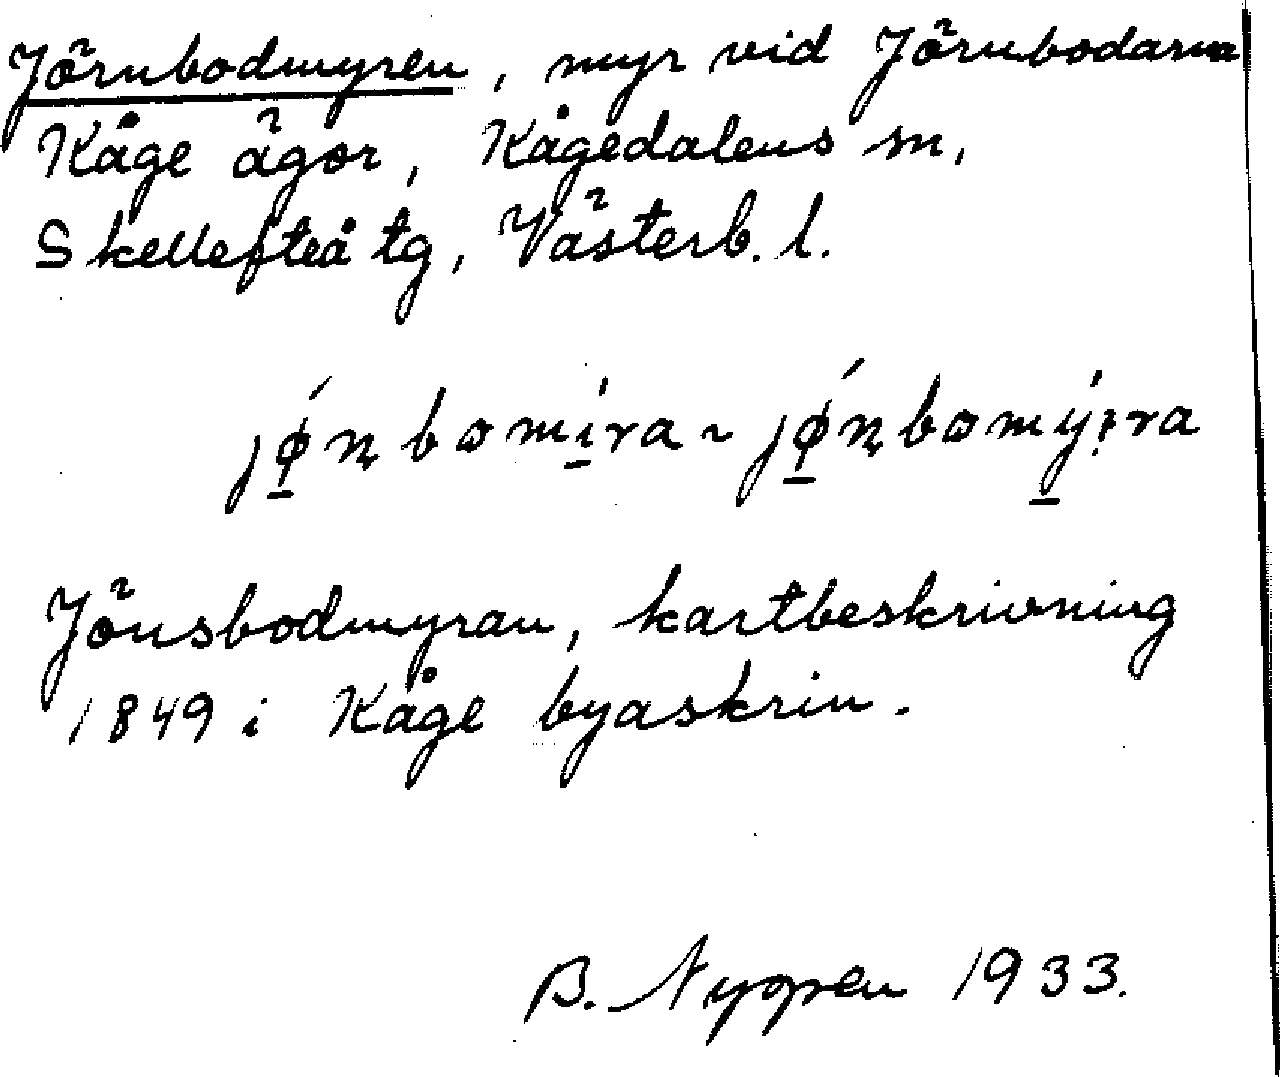 Jörnbodmyren, myr vid Jörnbodarna
Kåge ägor, Kågedalens sn,
Skellefteå tg, Västerb. l.
jǿn̥bomíra ~ jǿn̥bomý:ra
Jönsbodmyran, kartbeskrivning
1849 i Kåge byaskrin.
B. Nygren 1933.